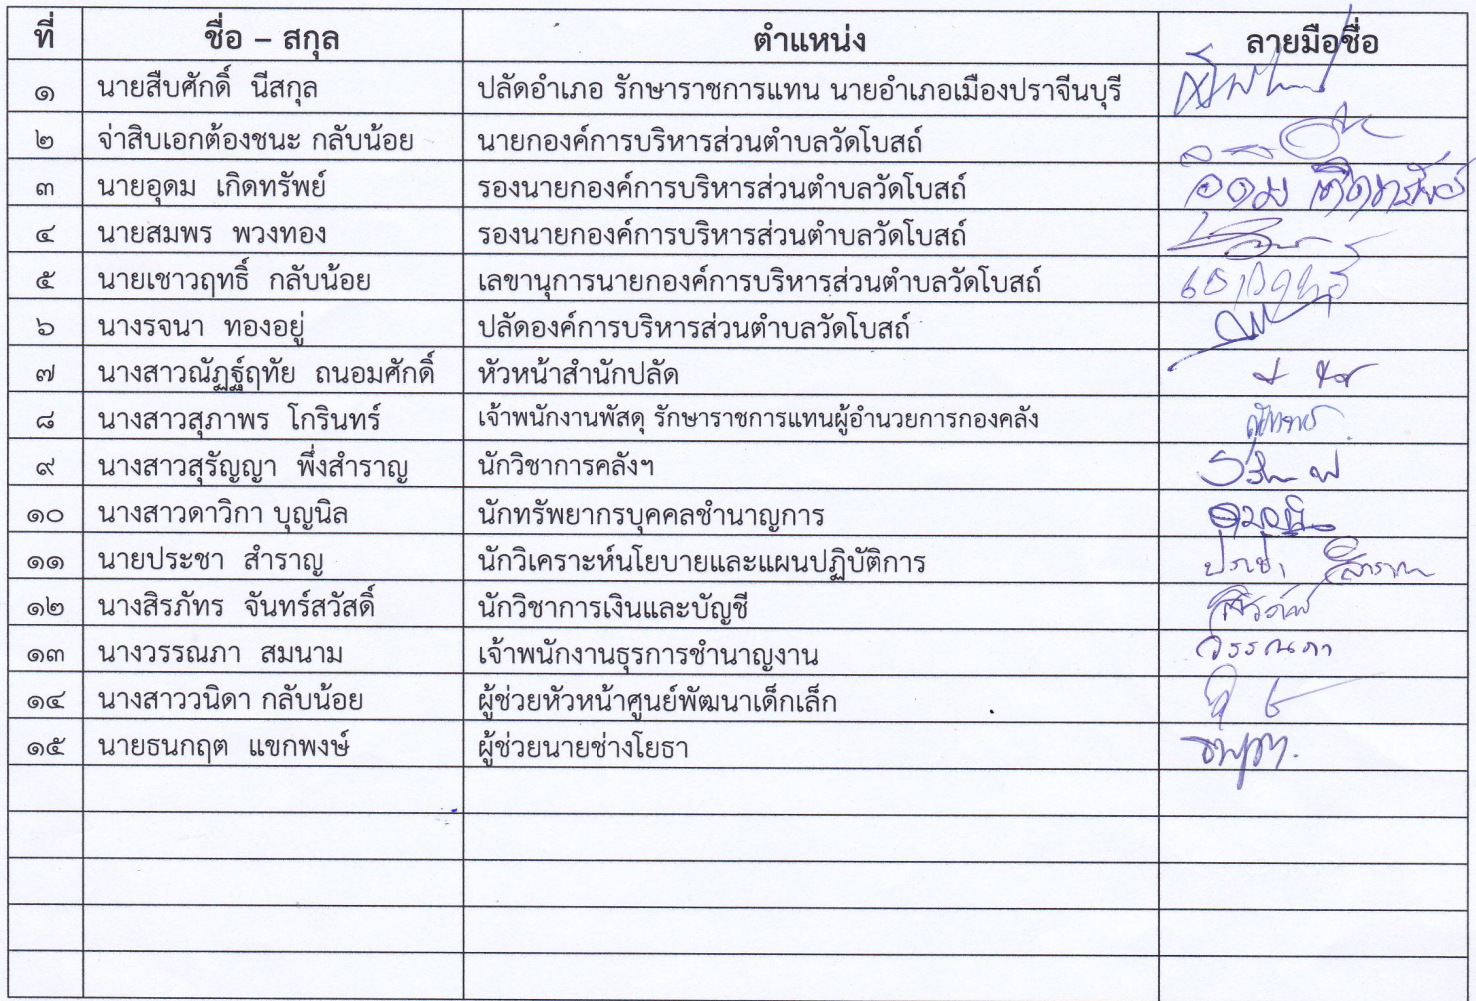 ที่ ชื่อ – สกุล ตำแหน่ง ลายมือชื่อ
๑ นายสืบศักดิ์ นีสกุล ปลัดอำเภอ รักษาราชการแทน นายอำเภอเมืองปราจีนบุรี
๒ จ่าสิบเอกต้องชนะ กลับน้อย นายกองค์การบริหารส่วนตำบลวัดโบสถ์
๓ นายอุดม เกิดทรัพย์ รองนายกองค์การบริหารส่วนตำบลวัดโบสถ์ อุดม เกิดทรัพย์
๔ นายสมพร พวงทอง รองนายกองค์การบริหารส่วนตำบลวัดโบสถ์
๕ นายเชาวฤทธิ์ กลับน้อย เลขานุการนายกองค์การบริหารส่วนตำบลวัดโบสถ์
๖ นางรจนา ทองอยู่ ปลัดองค์การบริหารส่วนตำบลวัดโบสถ์
๗ นางสาวณัฏฐ์ฤทัย ถนอมศักดิ์ หัวหน้าสำนักปลัด
๘ นางสาวสุภาพร โกรินทร์ เจ้าพนักงานพัสดุ รักษาราชการแทนผู้อำนวยการกองคลัง
๙ นางสาวสุรัญญา พึ่งสำราญ นักวิชาการคลังฯ
๑๐ นางสาวดาวิกา บุญนิล นักทรัพยากรบุคคลชำนาญการ
๑๑ นายประชา สำราญ นักวิเคราะห์นโยบายและแผนปฏิบัติการ ประชา สำราญ
๑๒ นางสิรภัทร จันทร์สวัสดิ์ นักวิชาการเงินและบัญชี
๑๓ นางวรรณภา สมนาม เจ้าพนักงานธุรการชำนาญงาน วรรณภา
๑๔ นางสาววนิดา กลับน้อย ผู้ช่วยหัวหน้าศูนย์พัฒนาเด็กเล็ก
๑๕ นายธนกฤต แขกพงษ์ ผู้ช่วยนายช่างโยธา